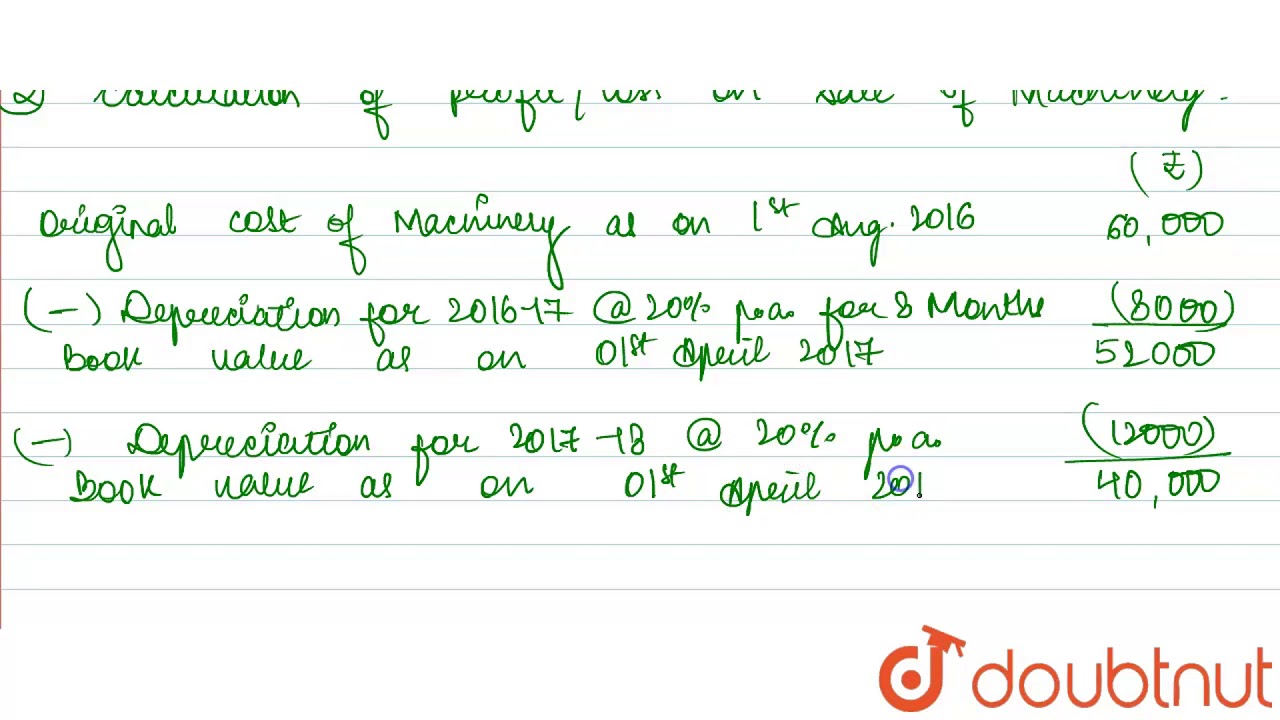 2) Calculation of profit/loss on sale of Machinery.
(₹)
Original cost of Machinery as on 1st Aug. 2016 60,000
(-) Depreciation for 2016-17 @ 20% p.a. for 8 Months (8000)
Book value as on 01st April 2017 52000
(-) Depreciation for 2017-18 @ 20% p.a. (12000)
Book value as on 01st April 201 40,000
doubtnut